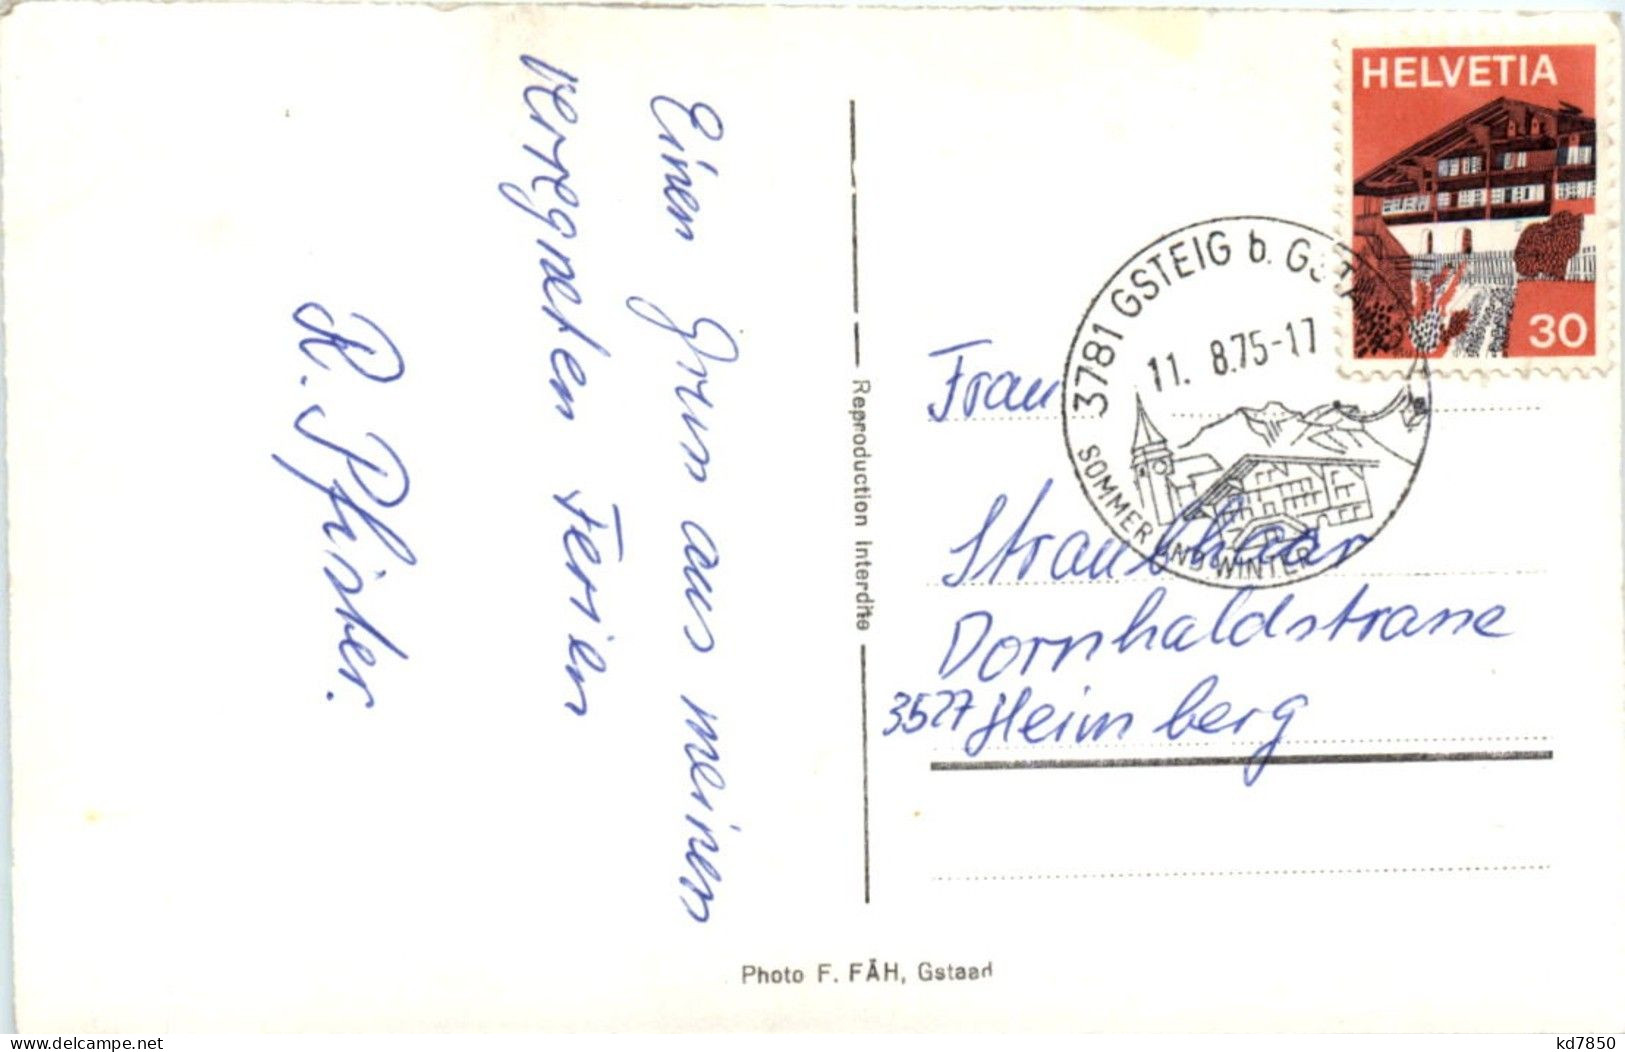 Einen Gruss aus meinen
verregneten Ferien
R. Pfister.
Reproduction Interdite
HELVETIA
30
3781 GSTEIG b. GSTA
11. 8.75-17
SOMMER UND WINTER
Frau
Straubhaar
Dornhaldstrasse
3527 Heimberg
Photo F. FÄH, Gstaad
kd7850